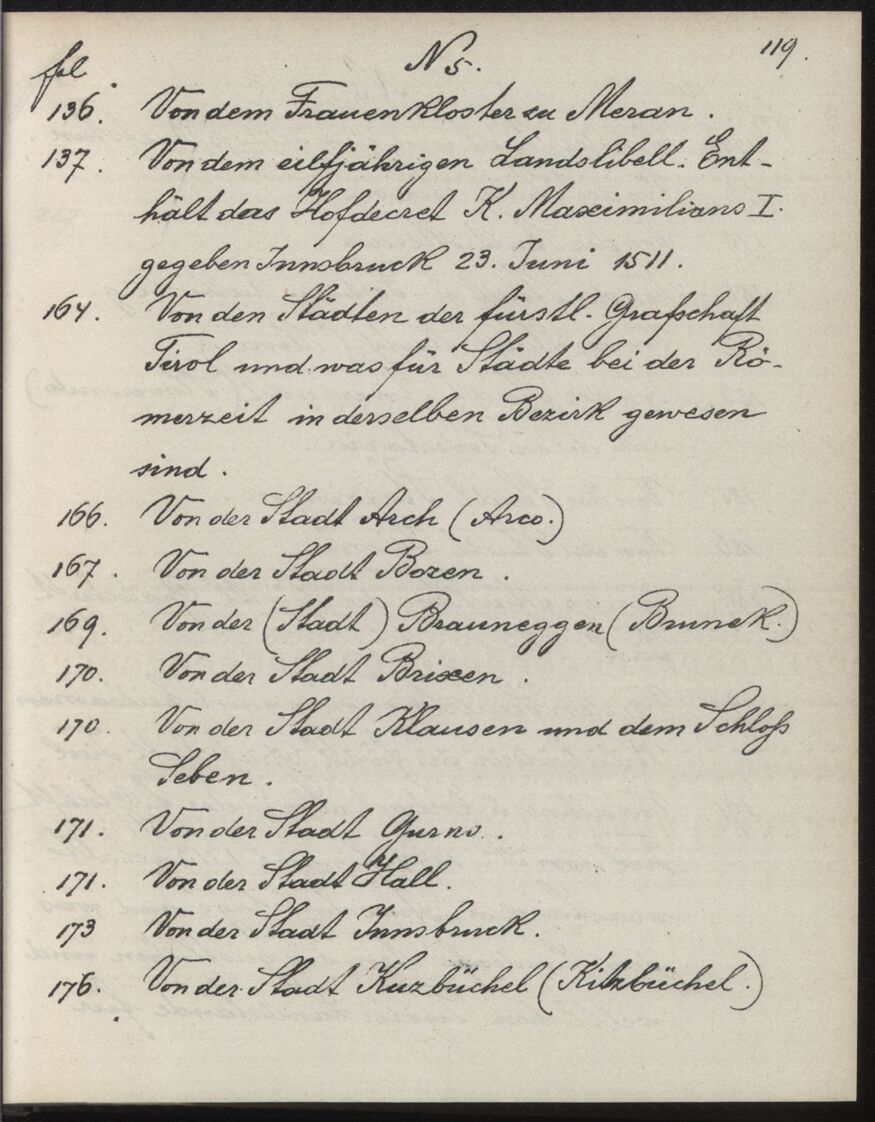 119.
fol N 5.
136. Von dem Frauenkloster zu Meran.
137. Von dem eilfjährigen Landslibell. Ent-
hält das Hofdecret K. Maximilians I.
gegeben Innsbruck 23. Juni 1511.
164. Von den Städten der fürstl. Grafschaft
Tirol und was für Städte bei der Rö-
merzeit in derselben Bezirk gewesen
sind.
166. Von der Stadt Arch (Arco.)
167. Von der Stadt Bozen.
169. Von der (Stadt) Brauneggen (Bruneck.)
170. Von der Stadt Brixen.
170. Von der Stadt Klausen und dem Schloß
Seben.
171. Von der Stadt Glurns.
171. Von der Stadt Hall.
173 Von der Stadt Innsbruck.
176. Von der Stadt Kuzbüchel (Kitzbüchel.)